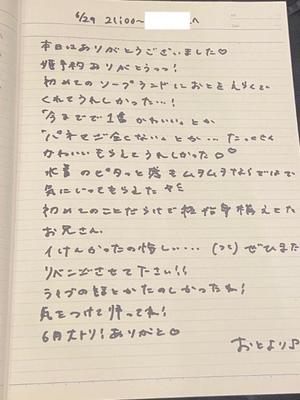 6/29 21:00〜
本日はありがとうございました♡
姫予約ありがとうっっ!
初めてのソープランドにおとをえらんで
くれてうれしかった…!
「今までで1番かわいい」とか
「パネマジ全くない」とか…たっくさん
かわいいもらえてうれしかった♡♡
水着のピタッと感もムチムチならではで
気にいってもらえた
初めてのことだらけで
お兄さん。
イけんかったの悔しい…
ぜひまた
リベンジさせて下さい!!
ライブの話とかたのしかったね!
気をつけて帰ってね!
6月大トリ!ありがと♡
おとより♪